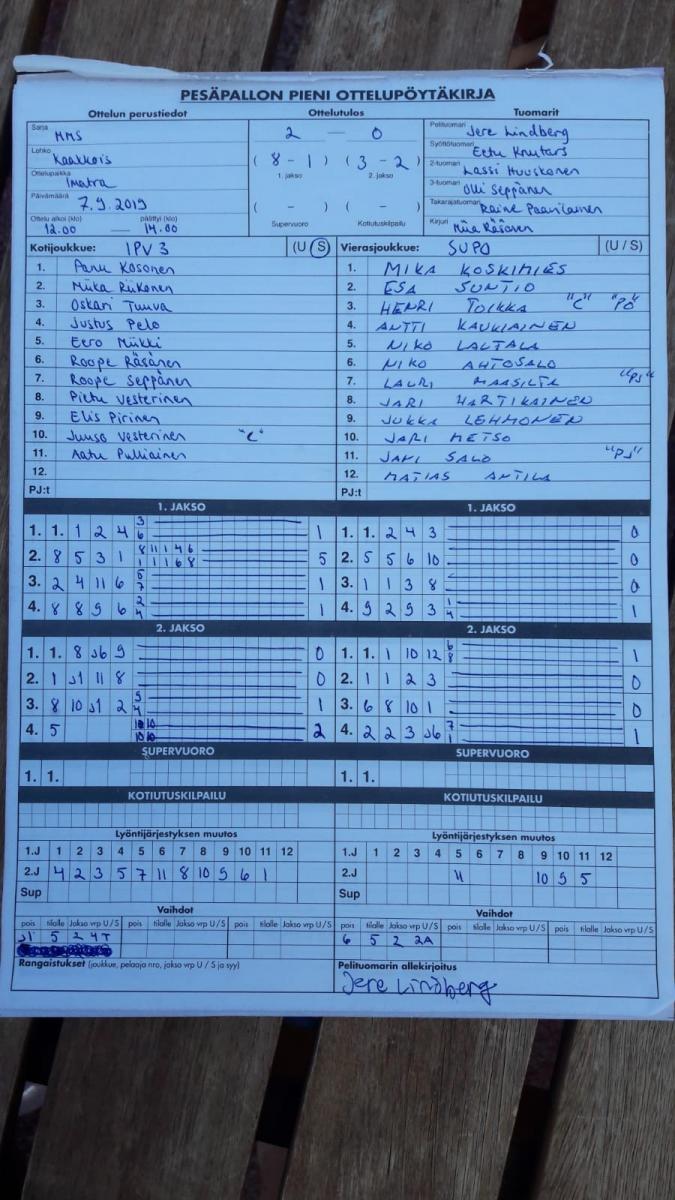 PESÄPALLON PIENI OTTELUPÖYTÄKIRJA
Ottelun perustiedot Ottelutulos Tuomarit
Sarja MMS
Lohko Kaakkois
Ottelupaikka Imatra
Päivämäärä 7.9.2019
Ottelu alkoi (klo) päättyi (klo)
12.00 — 14.00
2 — 0
( 8 - 1 ) ( 3 - 2 )
1. jakso 2. jakso
( - ) ( - )
Supervuoro Kotiutuskilpailu
Pelituomari Jere Lindberg
Syöttötuomari Eetu Knuters
2-tuomari Lassi Huuskonen
3-tuomari Olli Seppänen
Takarajatuomari Raine Paavilainen
Kirjuri Miia Räsänen
Kotijoukkue: IPV 3 (U / S) Vierasjoukkue: SUPO (U / S)
1. Panu Kosonen 1. MIKA KOSKIMIES
2. Miika Riikonen 2. ESA SUNTIO
3. Oskari Tuuva 3. HENRI TOIKKA "C" "PO"
4. Justus Pelo 4. ANTTI KAUKIAINEN
5. Eero Mikki 5. NIKO LAUTALA
6. Roope Räsänen 6. NIKO AHTOSALO
7. Roope Seppänen 7. LAURI MAASILTA "PJ"
8. Pietu Vesterinen 8. JARI HARTIKAINEN
9. Elis Pirinen 9. JUKKA LEHMONEN
10. Juuso Vesterinen "C" 10. JARI METSO
11. Aatu Pulliainen 11. JANI SALO "PJ"
12. 12. MATIAS ANTILA
PJ:t PJ:t
1. JAKSO 1. JAKSO
1. 1. 1 2 4 3 6 1 1. 1. 2 4 3 0
2. 8 5 3 1 8 11 1 4 6 1 1 1 6 8 5 2. 5 5 6 10 0
3. 2 4 11 6 5 7 1 3. 1 1 3 8 0
4. 8 8 9 6 2 4 1 4. 9 2 9 3 1 4 1
2. JAKSO 2. JAKSO
1. 1. 8 J6 9 0 1. 1. 1 10 12 6 8 1
2. 1 J1 11 8 0 2. 1 1 2 3 0
3. 8 10 J1 2 5 4 1 3. 6 8 10 1 0
4. 5 10 10 10 10 2 4. 2 2 3 J6 7 1 1
SUPERVUORO SUPERVUORO
1. 1. 1. 1.
KOTIUTUSKILPAILU KOTIUTUSKILPAILU
Lyöntijärjestyksen muutos Lyöntijärjestyksen muutos
1.J 1 2 3 4 5 6 7 8 9 10 11 12 1.J 1 2 3 4 5 6 7 8 9 10 11 12
2.J 4 2 3 5 7 11 8 10 9 6 1 2.J 11 10 9 5
Sup Sup
Vaihdot Vaihdot
pois tilalle Jakso vrp U/S pois tilalle Jakso vrp U/S pois tilalle Jakso vrp U/S pois tilalle Jakso vrp U/S pois tilalle Jakso vrp U/S pois tilalle Jakso vrp U/S
J1 5 2 4T 6 5 2 2A
Rangaistukset (joukkue, pelaaja nro, jakso vrp U / S ja syy) Pelituomarin allekirjoitus
Jere Lindberg